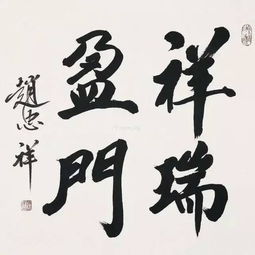 祥瑞
盈門
趙忠祥